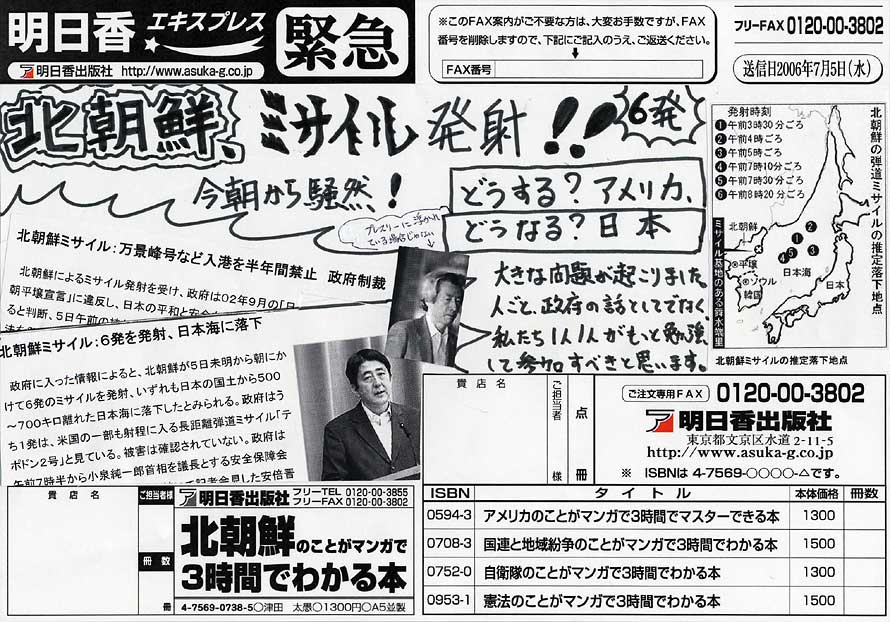 明日香 エキスプレス
緊急
明日香出版社 http://www.asuka-g.co.jp
※このFAX案内がご不要な方は、大変お手数ですが、FAX
番号を削除しますので、下記にご記入のうえ、ご返送ください。
FAX番号
フリーFAX 0120-00-3802
送信日2006年7月5日(水)
北朝鮮、ミサイル発射!!
6発
今朝から騒然!
どうする?アメリカ、
どうなる?日本
プレスリーに浮かれ
ている場合じゃない
大きな問題が起こりました。
人ごと、政府の話としてでなく、
私たち1人1人がもっと勉強
して参加すべきと思います。
発射時刻
❶午前3時30分ごろ
❷午前4時ごろ
❸午前5時ごろ
❹午前7時10分ごろ
❺午前7時30分ごろ
❻午前8時20分ごろ
北朝鮮の弾道ミサイルの推定落下地点
北朝鮮
ミサイル基地のある舞水端里
◎平壌
◎ソウル
韓国
日本海
日本
北朝鮮ミサイルの推定落下地点
北朝鮮ミサイル:万景峰号など入港を半年間禁止 政府制裁
北朝鮮によるミサイル発射を受け、政府は02年9月の「日
朝平壌宣言」に違反し、日本の平和と安全
ると判断、5日午前の
北朝鮮ミサイル:6発を発射、日本海に落下
政府に入った情報によると、北朝鮮が5日未明から朝にか
けて6発のミサイルを発射、いずれも日本の国土から500
~700キロ離れた日本海に落下したとみられる。政府はう
ち1発は、米国の一部も射程に入る長距離弾道ミサイル「テ
ポドン2号」と見ている。被害は確認されていない。政府は
午前7時半から小泉純一郎首相を議長とする安全保障会
て記者会見した安倍晋
貴店名
ご担当者様
冊数
冊
明日香出版社 フリーTEL 0120-00-3855
フリーFAX 0120-00-3802
北朝鮮のことがマンガで
3時間でわかる本
4-7569-0738-5○津田 太愚○1300円○A5並製
貴店名
ご担当者
様
点
冊
ご注文専用FAX 0120-00-3802
明日香出版社
東京都文京区水道2-11-5
http://www.asuka-g.co.jp
※ ISBNは 4-7569-○○○○-△です。
ISBN タイトル 本体価格 冊数
0594-3 アメリカのことがマンガで3時間でマスターできる本 1300
0708-3 国連と地域紛争のことがマンガで3時間でわかる本 1500
0752-0 自衛隊のことがマンガで3時間でわかる本 1300
0953-1 憲法のことがマンガで3時間でわかる本 1500